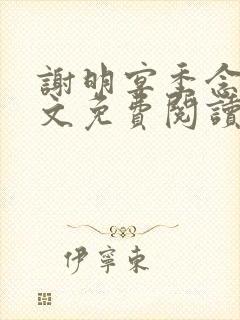 謝明宣季念
文免費閱讀
伊寧東